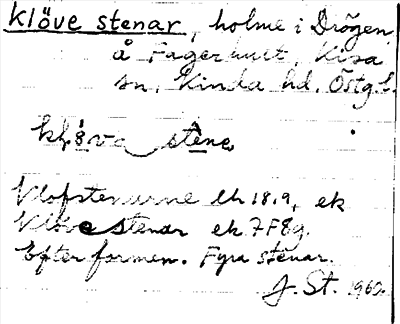 klöve stenar, holme i Drögen,
å Fagerhult, Kisa
sn, Kinda hd. Östg l.
stene
Klofstenarne lh 18.9, ek
Klöve stenar ek 7F8g.
Efter formen. Fyra stenar.
J. St. 1960.